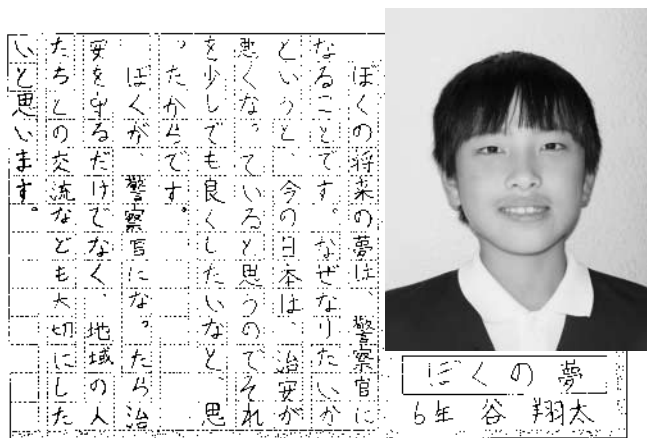 ぼくの夢
6年 谷 翔太
ぼくの将来の夢は、警察官に
なることです。なぜなりたいか
というと、今の日本は、治安が
悪くなっていると思うのでそれ
を少しでも良くしたいなと、思
ったからです。
ぼくが、警察官になったら治
安を守るだけでなく、地域の人
たちとの交流なども大切にした
いと思います。